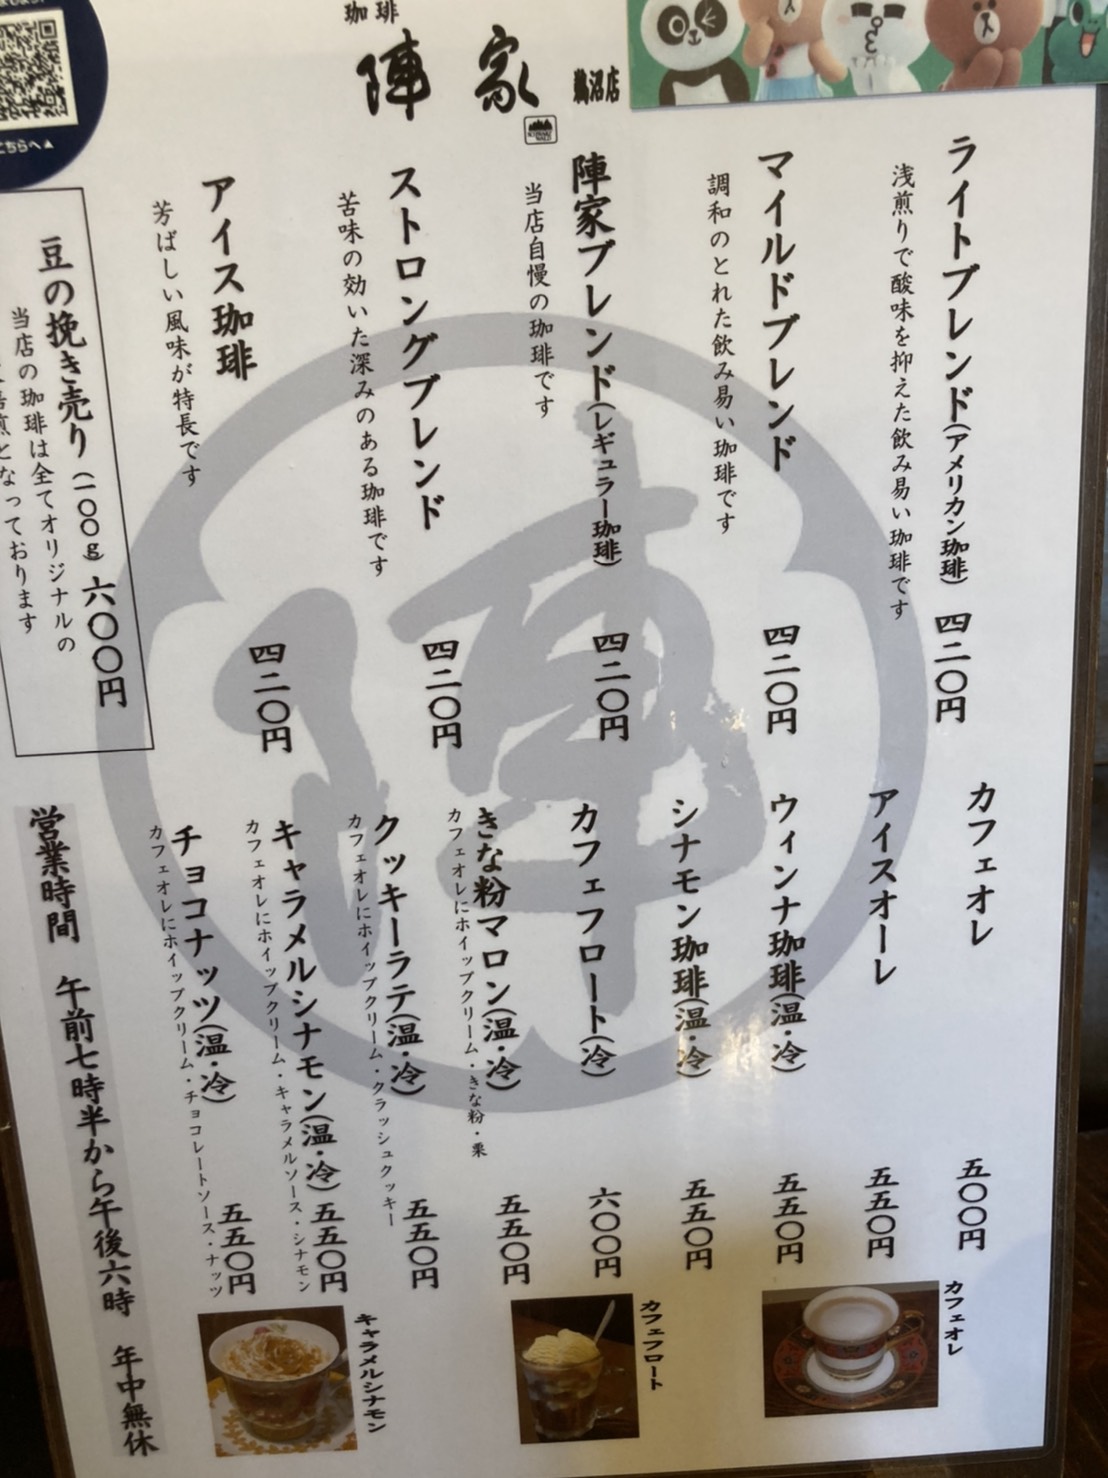 珈琲
陣家
鵜沼店
こちらへ▲
ライトブレンド(アメリカン珈琲) 四二〇円
浅煎りで酸味を抑えた飲み易い珈琲です
マイルドブレンド 四二〇円
調和のとれた飲み易い珈琲です
陣家ブレンド(レギュラー珈琲) 四二〇円
当店自慢の珈琲です
ストロングブレンド 四二〇円
苦味の効いた深みのある珈琲です
アイス珈琲 四二〇円
芳ばしい風味が特長です
豆の挽き売り(一〇〇g 六〇〇円
当店の珈琲は全てオリジナルの
となっております
カフェオレ 五〇〇円
アイスオーレ 五五〇円
ウィンナ珈琲(温・冷) 五五〇円
シナモン珈琲(温・冷) 五五〇円
カフェフロート(冷) 六〇〇円
きな粉マロン(温・冷) 五五〇円
カフェオレにホイップクリーム・きな粉・栗
クッキーラテ(温・冷) 五五〇円
カフェオレにホイップクリーム・クラッシュクッキー
キャラメルシナモン(温・冷) 五五〇円
カフェオレにホイップクリーム・キャラメルソース・シナモン
チョコナッツ(温・冷) 五五〇円
カフェオレにホイップクリーム・チョコレートソース・ナッツ
営業時間 午前七時半から午後六時 年中無休
カフェオレ
カフェフロート
キャラメルシナモン
陣